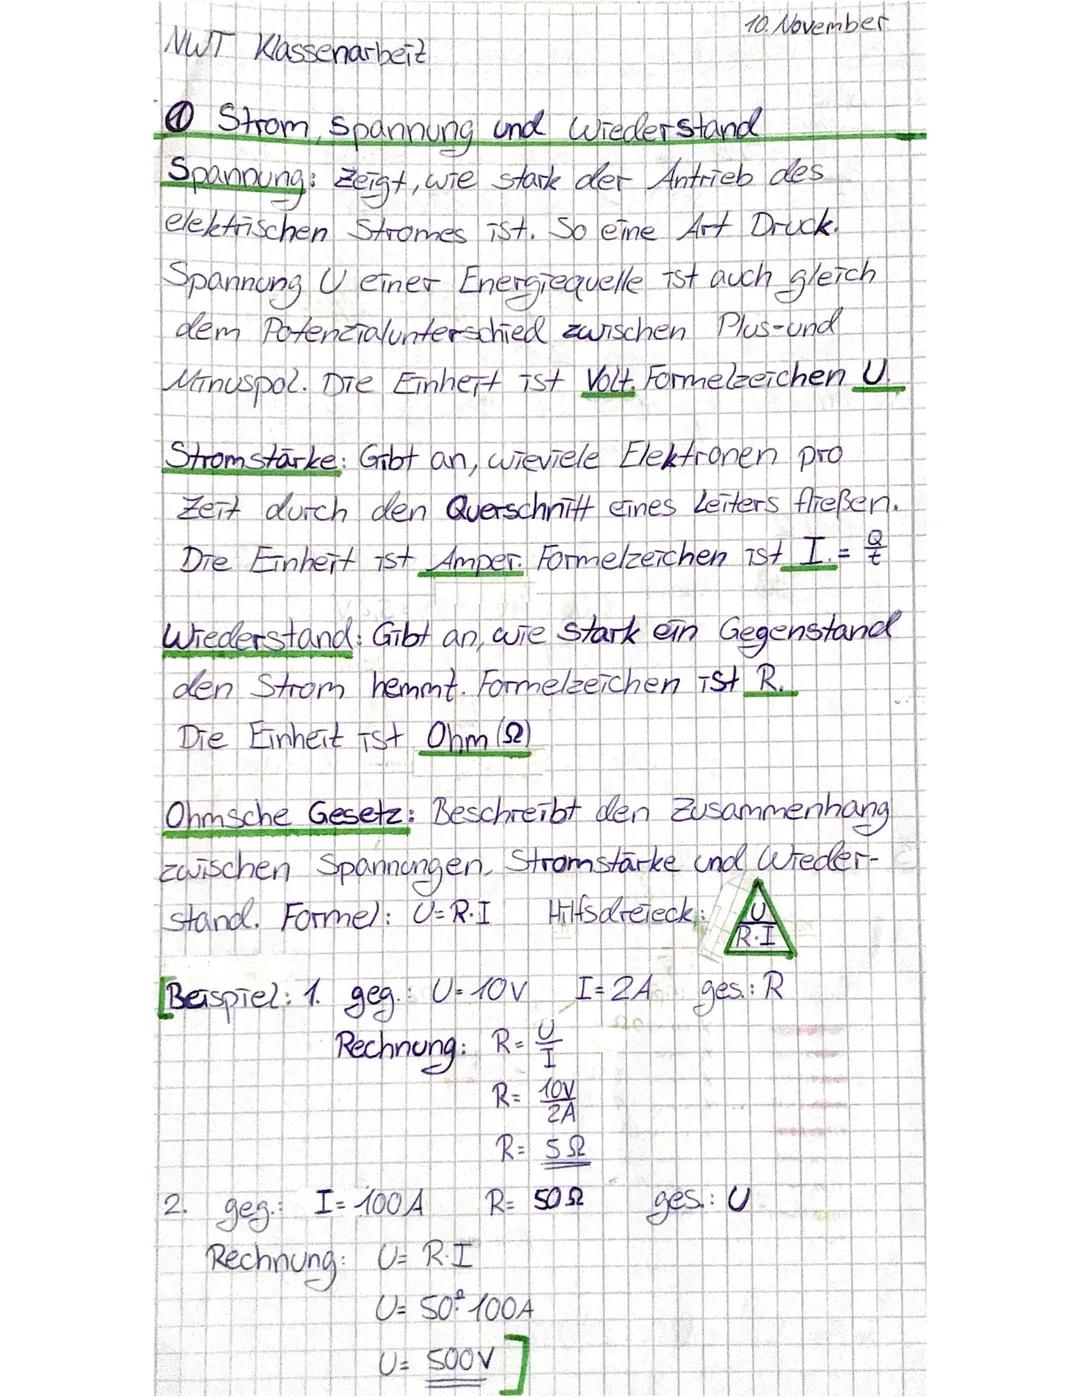 10. November
NWT Klassenarbeit
① Strom, Spannung und Wiederstand
Spannung: Zeigt, wie stark der Antrieb des
elektrischen Stromes ist. So eine Art Druck.
Spannung U einer Energiequelle ist auch gleich
dem Potenzialunterschied zwischen Plus- und
Minuspol. Die Einheit ist Volt. Formelzeichen U.
Stromstärke: Gibt an, wieviele Elektronen pro
Zeit durch den Querschnitt eines Leiters fließen.
Die Einheit ist Amper. Formelzeichen ist I. = Q/t
Wiederstand: Gibt an, wie stark ein Gegenstand
den Strom hemmt. Formelzeichen ist R.
Die Einheit ist Ohm (Ω)
Ohmsche Gesetz: Beschreibt den Zusammenhang
zwischen Spannungen, Stromstärke und Wieder-
stand. Formel: U=R·I Hilfsdreieck: U
R·I
[Beispiel: 1. geg.: U=10V I=2A ges.: R
Rechnung: R= U/I
R= 10V/2A
R= 5Ω
2. geg.: I=100A R= 50Ω ges.: U
Rechnung: U= R·I
U= 50Ω·100A
U= 500V]